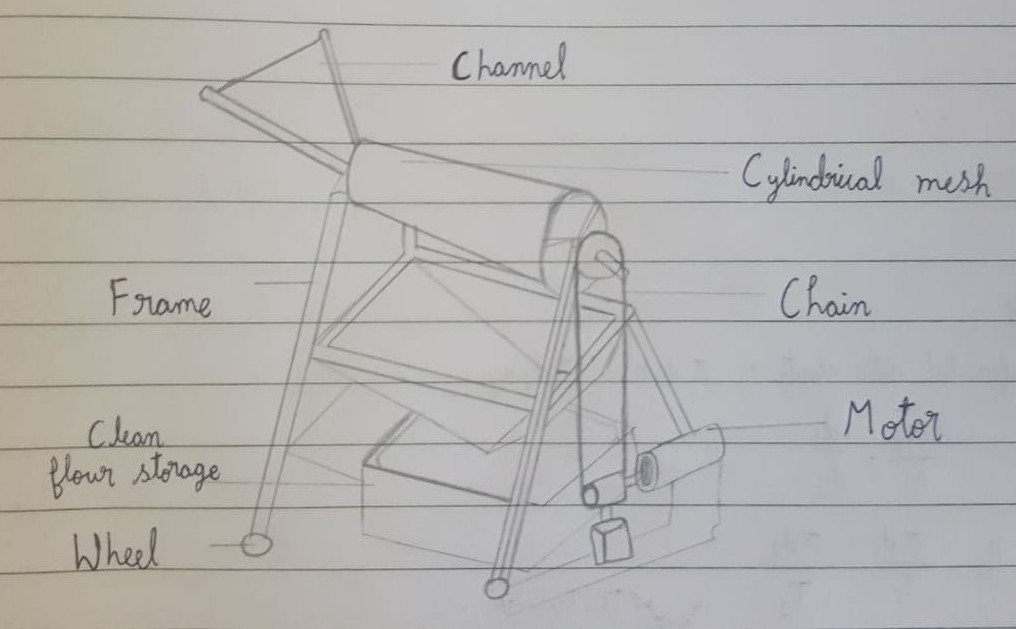 Channel
Cylindrical mesh
Frame
Chain
Clean
flour storage
Motor
Wheel